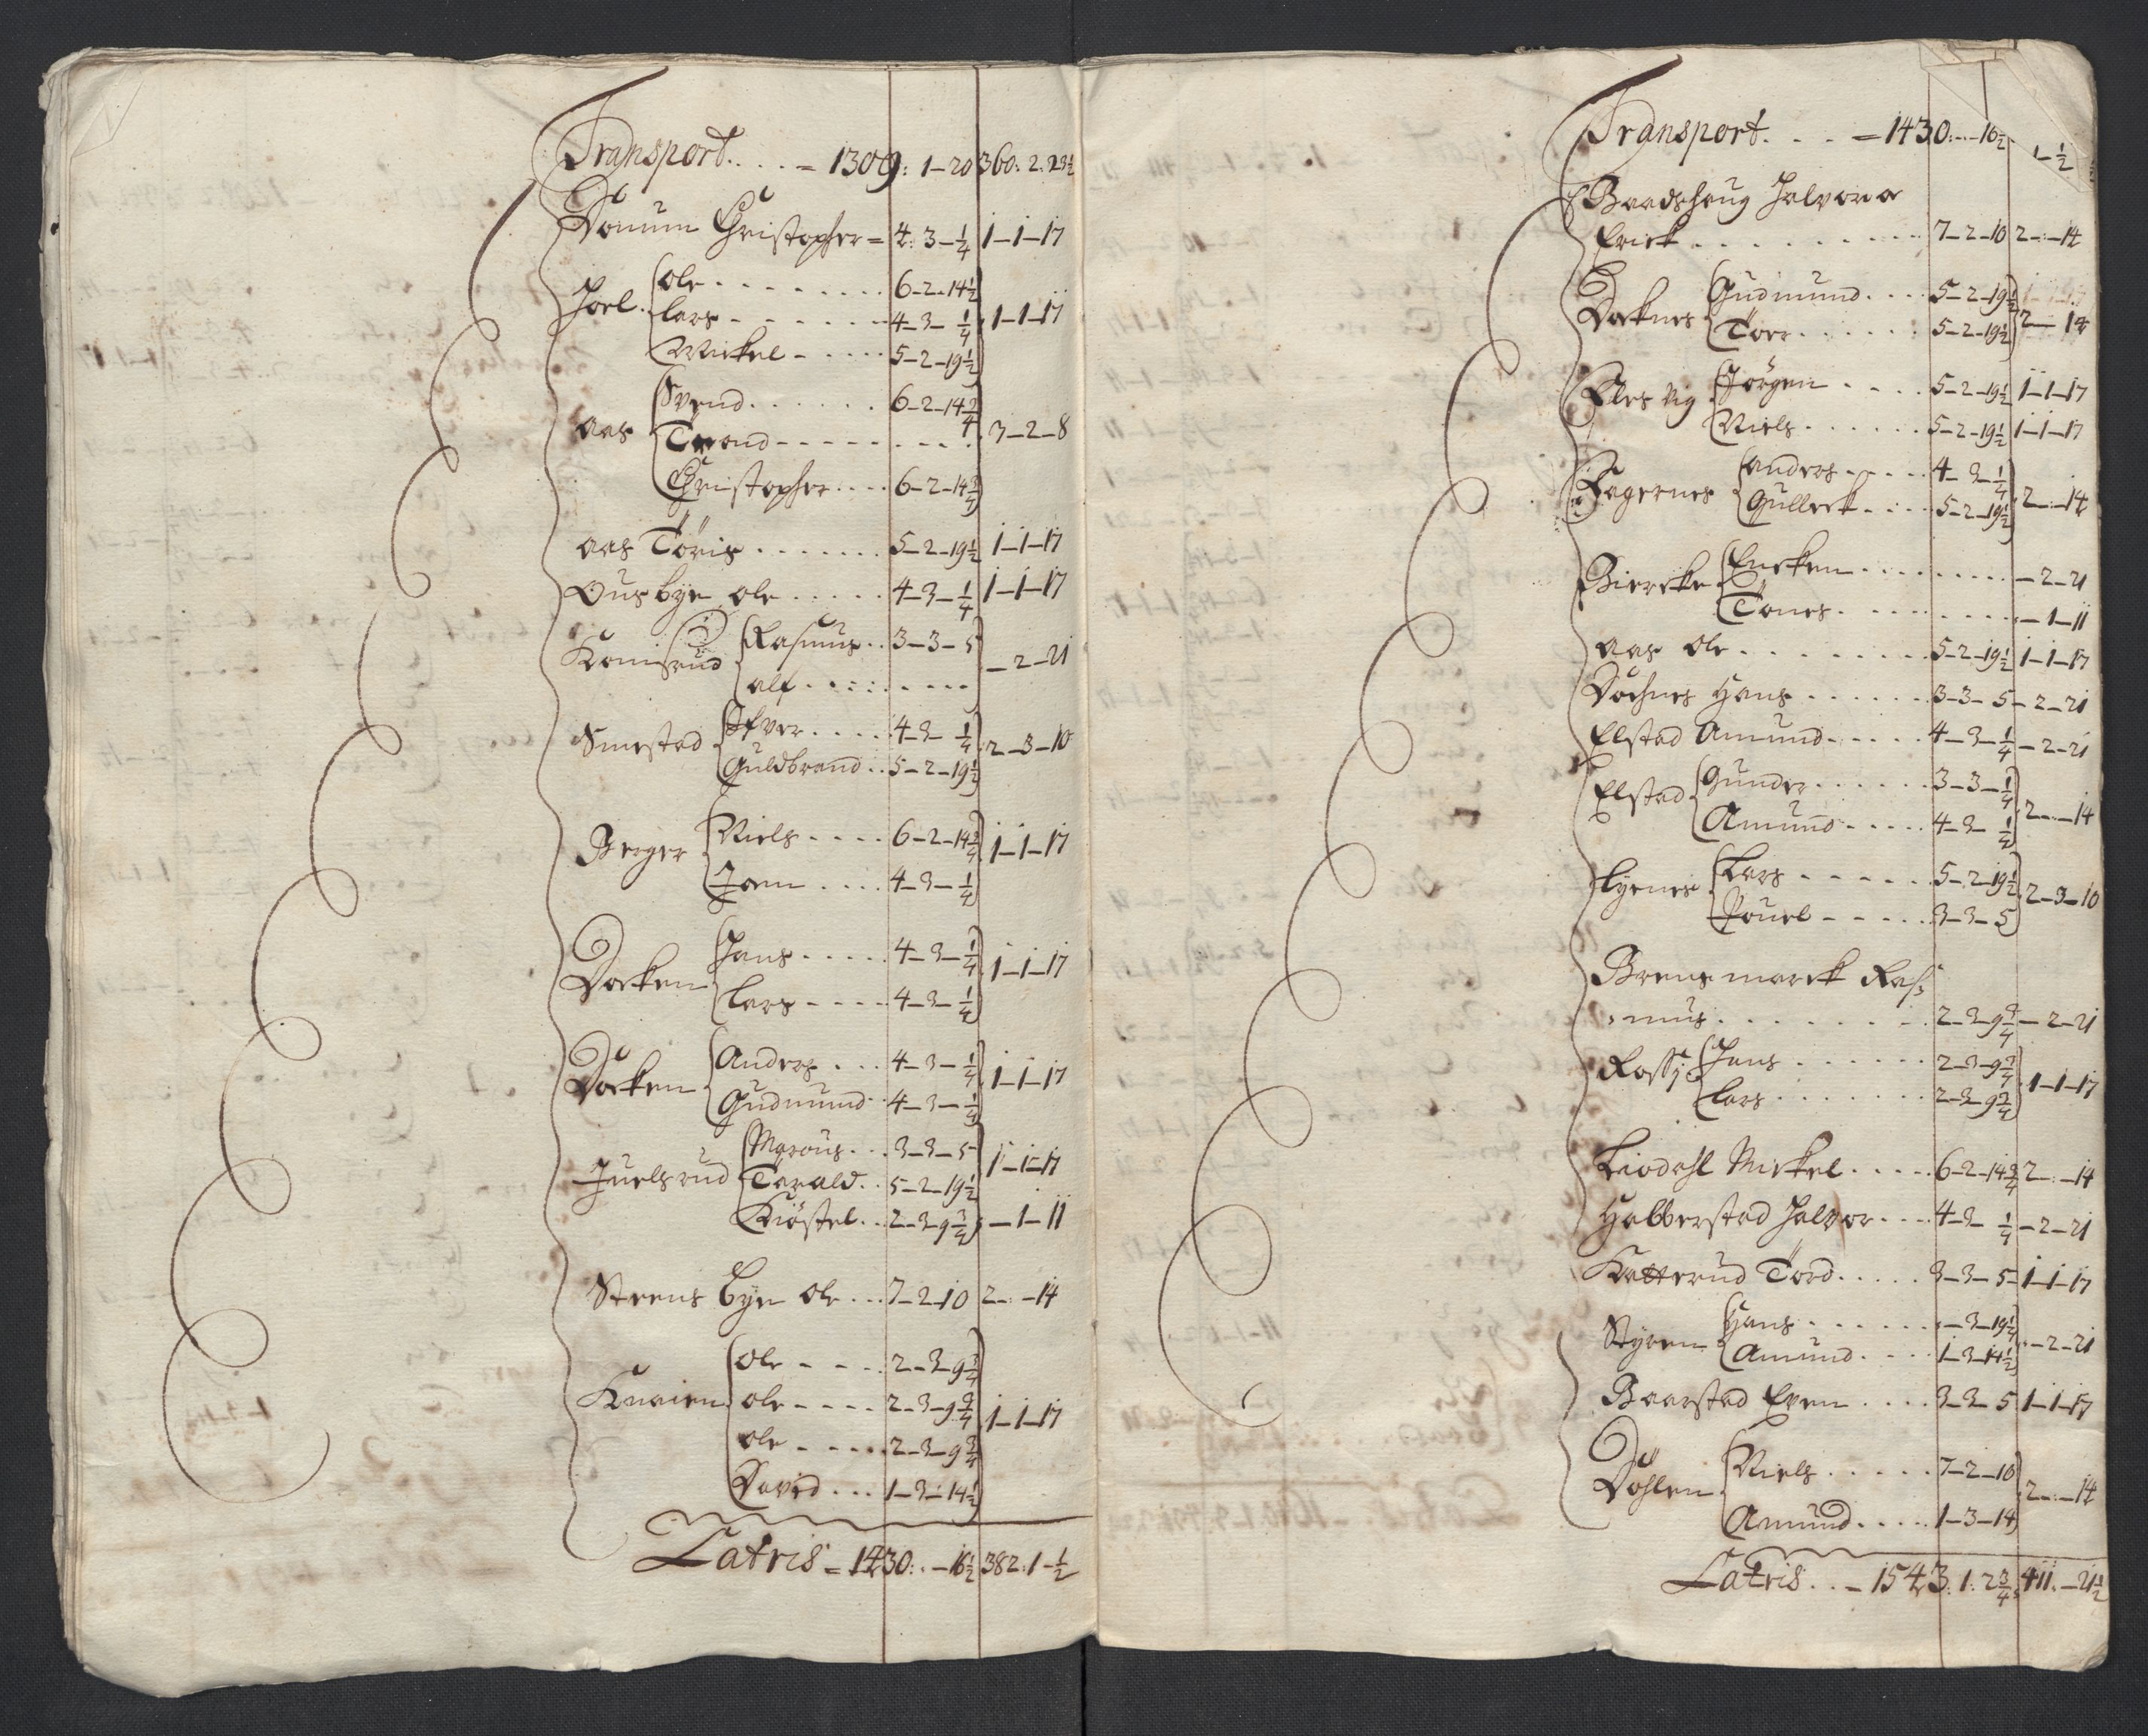 Transport. . . . = 1309: 1-20 360: 2: 23½
Donum Christopher = 4: 3-¼ 1-1-17
Joel Ole . . . . 6-2-14½
Lars . . . . 4-3-¼ 1-1-17
Mickel . . . . 5-2-19½
Aas Svend . . . . 6-2-14¾
Trond . . . . 3-2-8
Christopher . . . . 6-2-14¾
Aas Töris . . . . 5-2-19½ 1-1-17
Ousbye Ole . . . . 4-3-¼ 1-1-17
Komisrud Rasmus . . 3-3-5
Alf . . . . -2-21
Smestad Ifver . . . . 4-3-¼
Guldbrand . . 5-2-19½ 2-3-10
Berger Niels . . . . 6-2-14¾ 1-1-17
Joen . . . . 4-3-¼
Docken Hans . . . . 4-3-¼ 1-1-17
Lars . . . . 4-3-¼
Docken Anders . . . 4-3-¼ 1-1-17
Gudmund . . 4-3-¼
Juelsrud Marcus . . . 3-3-5 1-1-17
Tarald . . 5-2-19½
Kiöstel . . 2-3-9¾ -1-11
Steensbye Ole . . . 7-2-10 2-:-14
Knaien Ole . . . . 2-3-9¾
Ole . . . . 2-3-9¾ 1-1-17
Ole . . . . 2-3-9¾
David . . . 1-3-14½
Latris = 1430: . -16½ 382: 1-½
Transport. . . . = 1430: -: -16½ 1-½
Baadshaug Halvor a
Erick . . . . 7-2-10 2-:-14
Docknes Gudmund . . . . 5-2-19½
Torr . . . . 5-2-19½ 2-:-14
Flesvig Jörgen . . . . 5-2-19½ 1-1-17
Niels . . . . 5-2-19½ 1-1-17
Fagernes Anders . . . . 4-3-¼
Gulleck . . . . 5-2-19½ 2-:-14
Biercke Encken . . . . -2-21
Tönes . . . . -1-11
Aas Ole . . . . 5-2-19½ 1-1-17
Döchnes Hans . . . . 3-3-5 -2-21
Elstad Amund . . . . 4-3-¼ -2-21
Elstad Gunder . . . . 3-3-¼
Amund . . . . 4-3-¼ 2-:-14
Lyenes Lars . . . . 5-2-19½
Pouel . . . . 3-3-5 2-3-10
Brensmarck Ras-
mus . . . . 2-3-9¾ -2-21
Hans . . . . 2-3-9¾
Lars . . . . 2-3-9¾ 1-1-17
Liodahl Mickel . . . . 6-2-14¾ 2-:-14
Habberstad Halvor . . . . 4-3-¼ -2-21
Katterud Tord . . . . 3-3-5 1-1-17
Styren Hans . . . . -3-19¼
Amund . . . . 1-3-14½ -2-21
Baarstad Even . . . . 3-3-5 1-1-17
Döhlen Niels . . . . 7-2-10
Amund . . . . 1-3-14 2-:-14
Latris . . - 1543: 1: 2¾ 411: -21½